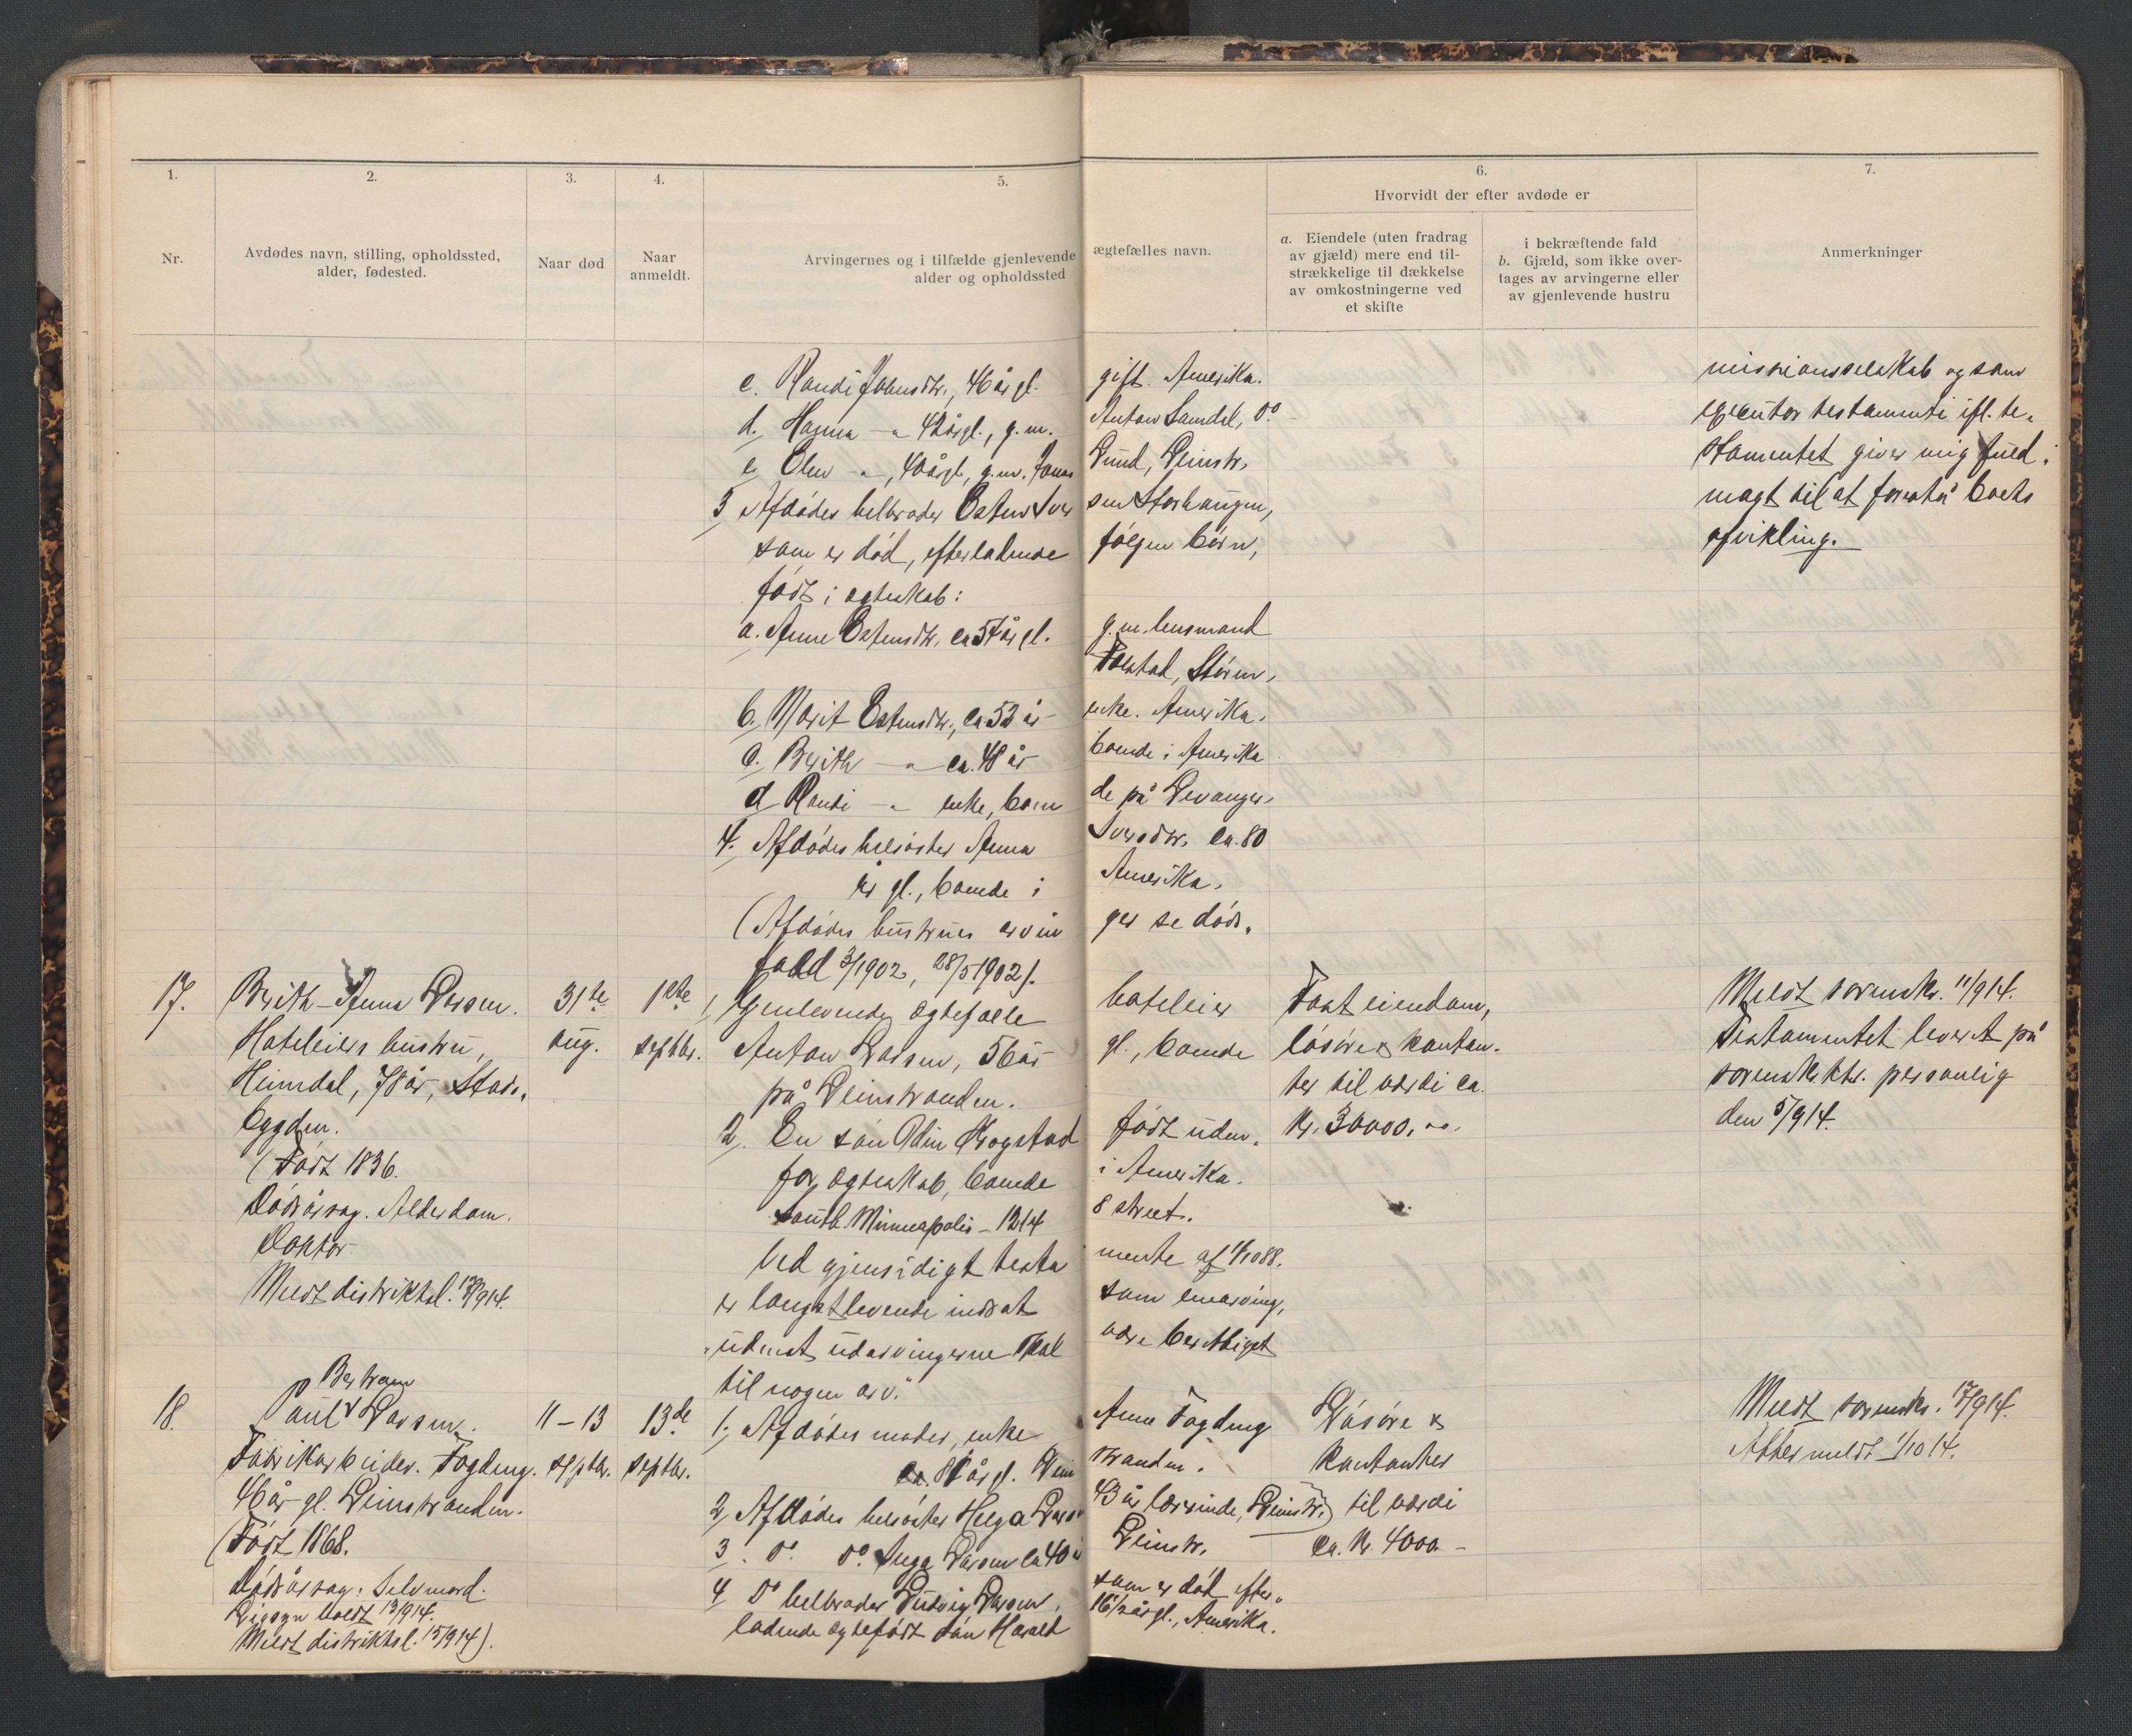 1.
2.
3.
4.
5.
6.
7.
Hvorvidt der efter avdøde er
Nr.
Avdødes navn, stilling, opholdssted,
alder, fødested.
Naar død
Naar
anmeldt.
Arvingernes og i tilfælde gjenlevende ægtefælles navn.
alder og opholdssted
a. Eiendele (uten fradrag
av gjæld) mere end til-
strækkelige til dækkelse
av omkostningerne ved
et skifte
i bekræftende fald
b. Gjæld, som ikke over-
tages av arvingerne eller
av gjenlevende hustru
Anmerkninger
c. Randi Johnsdtr., 46 år gl. gift. Amerika.
d. Hanna — " 42 årgl., g.m. Anton Samdal, do.
e, Elen " , 40 årgl, g.m. Jonas Lund, Leinstr.
3, Afdødes helbroder Esten Iversen Storhaugen,
som er død, efterladende følgen börn,
födt i egteskab:
a. Anne Estensdtr. ca 57 år gl. g.m. lensmand
Støren,
b, Marit Estensdtr., ca 52 år — enke. Amerika.
c. Berith — " — ca. 48 år boende i Amerika
d Randi — " enke, boende på Levanger.
4. Afdödes helsöster Anna Iversdtr. ca. 80
år gl., boende i Amerika.
(Afdødes hustrues arvinger se döds.
fald 3/1902, 28/5 1902).
missionsselskab og som
executor testamenti ifl. te-
stamentet giver mig fuld-
magt til at forestå boets
afvikling.
17.
Berith-Anna Larsen.
Hoteleiers hustru,
Heimdal, 78 år, Stads-
bygden.
(Födt 1836.
Dödsårsag. Alderdom.
Doktor
Meldt distriktsl. 12/9 14.
31te
aug.
1ste
septbr.
1, Gjenlevende egtefælle hoteleier
Anton Larsen, 56 år gl., boende
på Leinstranden.
2. En sön Odin Krogstad födt uden-
for egteskab, boende i Amerika.
South Minneapolis — 1214 8 street.
Ved gjensidigt testamente af 1/10 88.
er længstlevende indsat som enearving,
"udenat udarvingerne skal være berettiget
til nogen arv."
Fast eiendom,
lösöre & kontan-
ter til værdi ca.
Kr. 30000,00.
Meldt sorenskr. 11/9 14.
Testamentet leveret på
sorenskr.ktr. personlig
den 5/9 14.
18.
Bertram
Paul Larsen.
Fabrikarbeider. Fogding.
46 år gl. Leinstranden.
(Födt 1868.
Dödsårsag. Selvmord.
Ligsyn holdt 13/9 14.
Meldt distriktsl. 15/9 14).
11 – 13
septbr.
13de
septbr.
1, Afdödes moder, enke Anne Fogding
ca. 81 år gl. Leinstranden.
2, Afdödes helsöster Helga Larsen 43 år lærerinde, Leinstr.
3. do. do. Inga Larsen ca 40 år Leinstr.
4 do helbroder Ludvig Larsen, som er död efter-
ladende egtefödt sön Harald 16 1/2 årgl., Amerika.
Lösöre &
kontanter
til værdi
ca. Kr. 4000 —
Meldt sorenskr. 17/9 14.
Attermeldt 1/10 14.